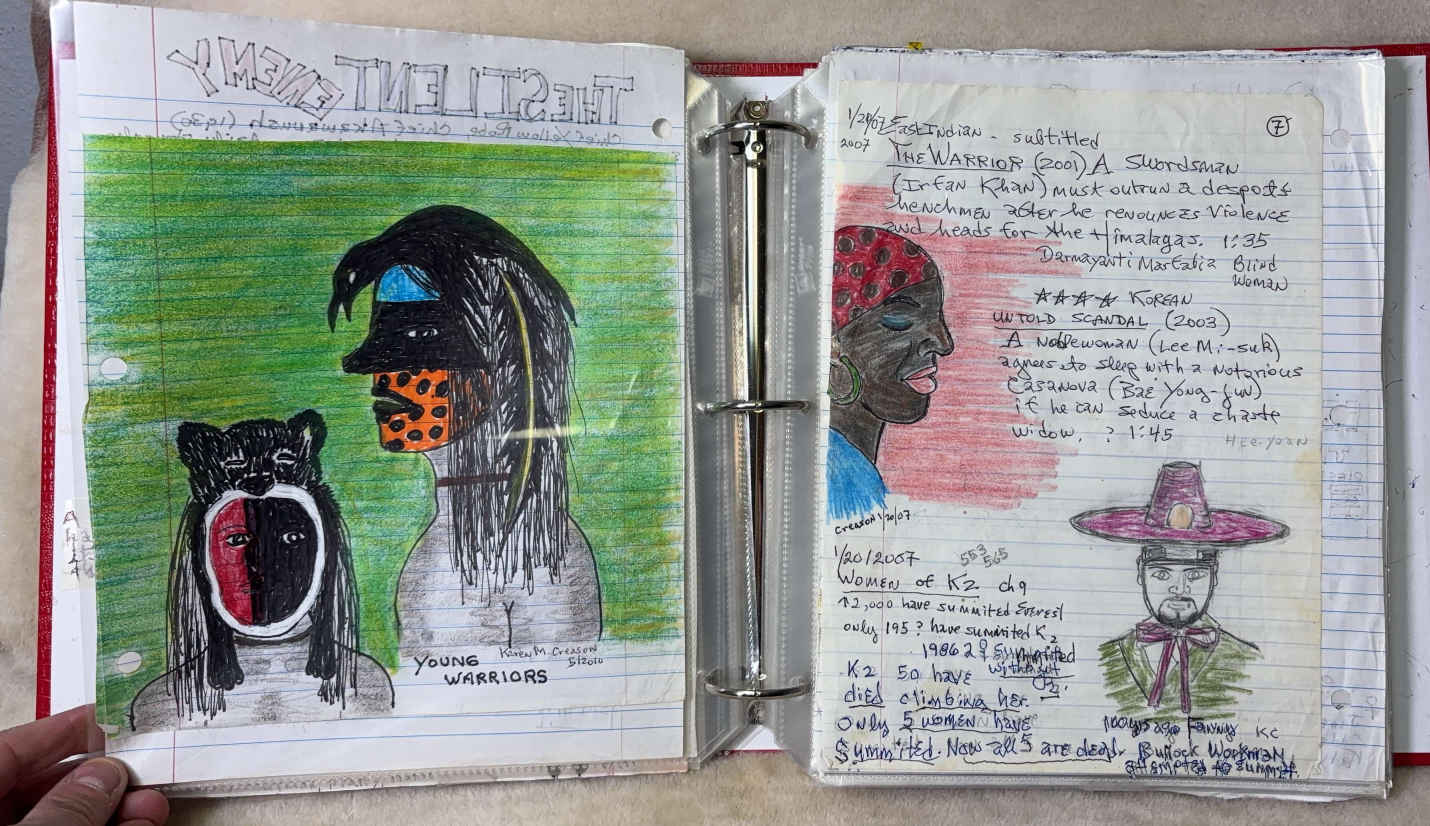 THE SILENT ENEMY
Chief Yellow Robe Chief Akawanush (1930)
Karen M. Creason
5/2010
YOUNG
WARRIORS
7
1/20/07 East Indian - subtitled
2007
THE WARRIOR (2001) A Swordsman
(Irfan Khan) must outrun a despots
henchmen after he renounces violence
and heads for the Himalagas. 1:35
Darmayanti Marfatia Blind
Woman
☆☆☆☆ KOREAN
UNTOLD SCANDAL (2003)
A Noblewoman (Lee Mi-suk)
agrees to sleep with a notorious
Casanova (Bae Yong-jun)
if he can seduce a chaste
widow. ? 1:45
HEE-YOON
Creason 1/20/07
1/20/2007
553
565
Women of K2 ch 9
↑2,000 have summited Everest
only 195? have summited K2
1986 2♀ Summited
without
O2.
K2 50 have
died climbing her.
Only 5 women have
Summited. Now all 5 are dead.
100 yrs ago Fanny KC
Bullock Workman
attempted to summit.